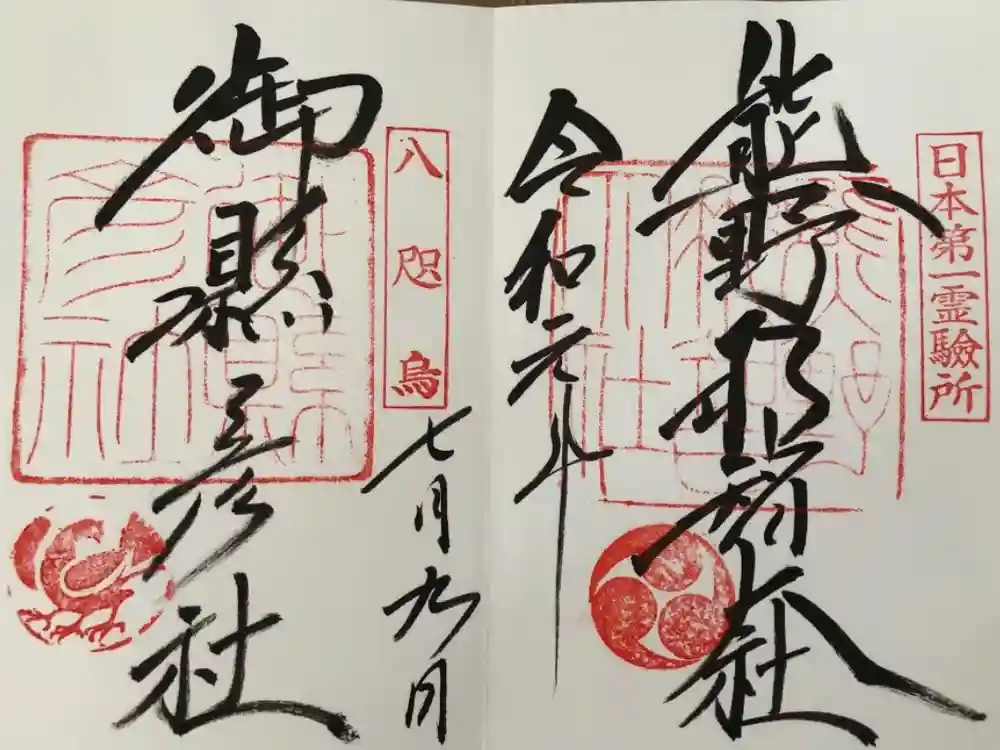 日本第一霊驗所
熊野那智大社
令和元年
七月九日
八咫烏
御縣彦社